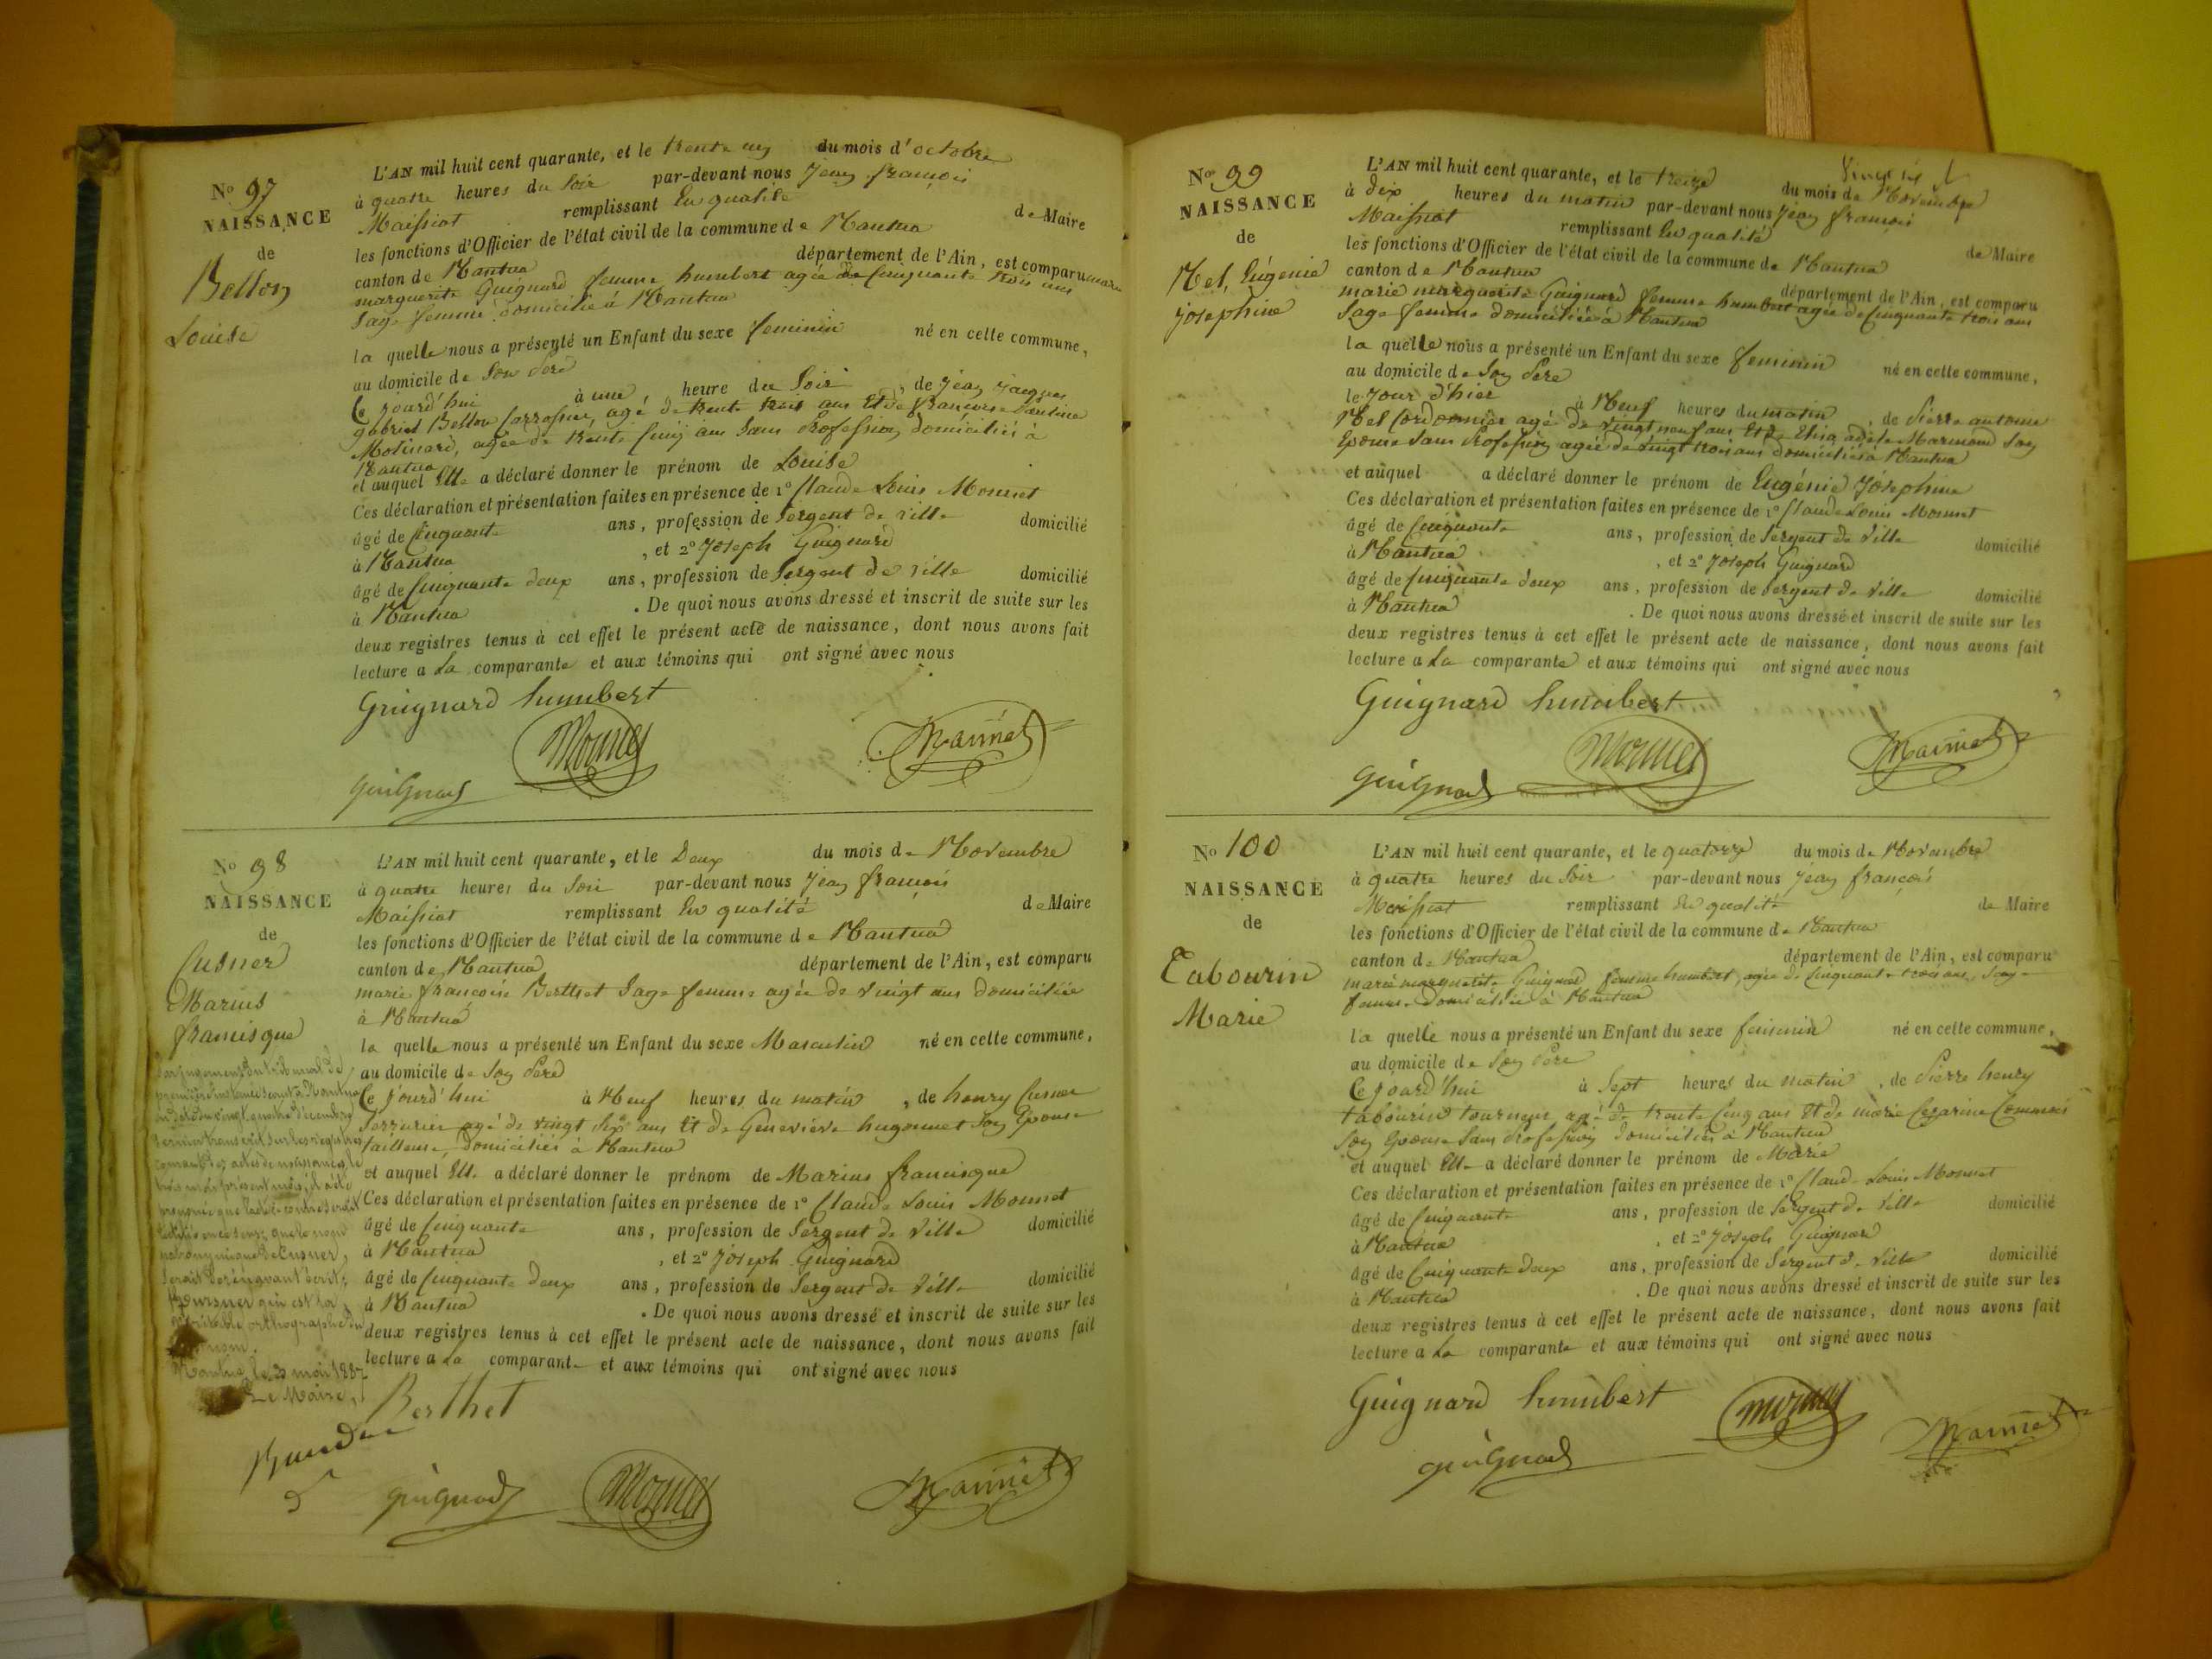 N° 97
NAISSANCE
de
Bellon
Louise
L'AN mil huit cent quarante, et le trente un du mois d'octobre
à quatre heures du Soir par-devant nous Jean françois
Maissiat remplissant En qualité de Maire
les fonctions d'Officier de l'état civil de la commune de Nantua
canton de Nantua département de l'Ain, est comparu marie
marguerite Guignard femme humbert agée de Cinquante trois ans
Sage femme domicilié à Nantua
la quelle nous a présenté un Enfant du sexe feminin né en celle commune,
au domicile de Son Pere
Ce jourd'hui à une heure du Soir, de Jean Jacques
gabriel Bellon Carrossier, agé de trente trois ans Et de francoise Pauline
Molinard, agée de trente Cinq ans Sans Profession domiciliés à
Nantua
et auquel Elle a déclaré donner le prénom de Louise
Ces déclaration et présentation faites en présence de 1° Claude Louis Monnet
âgé de Cinquante ans, profession de Sergent de ville domicilié
à Nantua, et 2° Joseph Guignard
âgé de Cinquante deux ans, profession de Sergent de ville domicilié
à Nantua. De quoi nous avons dressé et inscrit de suite sur les
deux registres tenus à cet effet le présent acte de naissance, dont nous avons fait
lecture a La comparante et aux témoins qui ont signé avec nous
Guignard humbert
Monnet
Guignard
N° 98
NAISSANCE
de
Cusner
Marius
francisque
L'AN mil huit cent quarante, et le Deux du mois de Novembre
à quatre heures du Soir par-devant nous Jean françois
Maissiat remplissant En qualité de Maire
les fonctions d'Officier de l'état civil de la commune de Nantua
canton de Nantua département de l'Ain, est comparu
marie francoise Berthet Sage femme agée de vingt ans domiciliée
à Nantua
la quelle nous a présenté un Enfant du sexe Masculin né en celle commune,
au domicile de Son Pere
Ce jourd'hui à Neuf heures du matin, de henry Cusner
Serrurier agé de vingt Six ans Et de Genevieve hugonnet Son Epouse
tailleuse, domiciliés à Nantua
et auquel Elle a déclaré donner le prénom de Marius francisque
Ces déclaration et présentation faites en présence de 1° Claude Louis Monnet
âgé de Cinquante ans, profession de Sergent de Ville domicilié
à Nantua, et 2° Joseph Guignard
âgé de Cinquante deux ans, profession de Sergent de Ville domicilié
à Nantua. De quoi nous avons dressé et inscrit de suite sur les
deux registres tenus à cet effet le présent acte de naissance, dont nous avons fait
lecture a La comparante et aux témoins qui ont signé avec nous
Par jugement du tribunal de
première instance séant à Nantua
en date du vingt quatre décembre
dernier transcrit sur les registres
courants des actes de naissance le
trois mai présent mois, il a été
que l'acte ci contre serait
rectifié en ce sens que le nom
patronymique de Cusner,
serait écrit
qui est la
véritable orthographe du
nom.
Nantua, le mai 1887
Le Maire,
Berthet
Guignard
Monnet
N° 99
NAISSANCE
de
Net, Eugenie
Josephine
L'AN mil huit cent quarante, et le treize du mois de Novembre
à dix heures du matin par-devant nous Jean françois
Maissiat remplissant En qualité de Maire
les fonctions d'Officier de l'état civil de la commune de Nantua
canton de Nantua département de l'Ain, est comparu
marie marguerite Guignard femme humbert agée de Cinquante trois ans
Sage femme domiciliée à Nantua
la quelle nous a présenté un Enfant du sexe feminin né en celle commune,
au domicile de Son Pere
le Jour d'hier à Neuf heures du matin, de Pierre antoine
Net Cordonnier agé de vingt neuf ans Et de Elisa adele Marmond Son
Epouse Sans Profession agée de vingt trois ans domiciliés à Nantua
et auquel a déclaré donner le prénom de Eugénie Joséphine
Ces déclaration et présentation faites en présence de 1° Claude Louis Monnet
âgé de Cinquante ans, profession de Sergent de Ville domicilié
à Nantua, et 2° Joseph Guignard
âgé de Cinquante deux ans, profession de Sergent de Ville domicilié
à Nantua. De quoi nous avons dressé et inscrit de suite sur les
deux registres tenus à cet effet le présent acte de naissance, dont nous avons fait
lecture a La comparante et aux témoins qui ont signé avec nous
Guignard humbert
Guignard
Monnet
N° 100
NAISSANCE
de
Tabourin
Marie
L'AN mil huit cent quarante, et le quatorze du mois de Novembre
à quatre heures du Soir par-devant nous Jean françois
Maissiat remplissant En qualité de Maire
les fonctions d'Officier de l'état civil de la commune de Nantua
canton de Nantua département de l'Ain, est comparu
marie marguerite Guignard femme humbert, agée de Cinquante trois ans, Sage
femme domiciliée à Nantua
la quelle nous a présenté un Enfant du sexe feminin né en celle commune,
au domicile de Son Pere
Ce jourd'hui à Sept heures du matin, de Pierre henry
tabourin tourneur agé de trente Cinq ans Et de marie Cesarine
Son Epouse Sans Profession domiciliés à Nantua
et auquel Elle a déclaré donner le prénom de Marie
Ces déclaration et présentation faites en présence de 1° Claude Louis Monnet
âgé de Cinquante ans, profession de Sergent de Ville domicilié
à Nantua, et 2° Joseph Guignard
âgé de Cinquante deux ans, profession de Sergent de Ville domicilié
à Nantua. De quoi nous avons dressé et inscrit de suite sur les
deux registres tenus à cet effet le présent acte de naissance, dont nous avons fait
lecture a La comparante et aux témoins qui ont signé avec nous
Guignard humbert
Monnet
Guignard